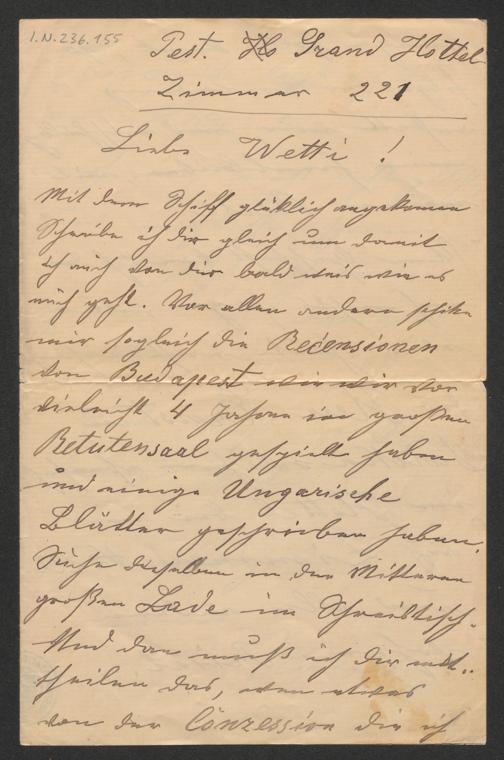 I.N. 236.155
Pest. Ho Grand Hottel
Zimmer 221
Liebe Wetti!
Mit dem Schiff glüklich angekomen
Schreibe ich dir gleich um damit
ich auch von dir bald weis wie es
euch geht. Vor allen andern schike
mir sogleich die Recensionen
von Budapest wie wir vor
vieleicht 4 Jahren im großen
Retutensaal gespielt haben
und einige Ungarische
Blätter geschrieben haben.
Suche dieselben in der Mitteren
großen Lade im Schreibtisch.
Und dan muß ich dir mit-
theilen das, wen etwas
von der Conzession die ich